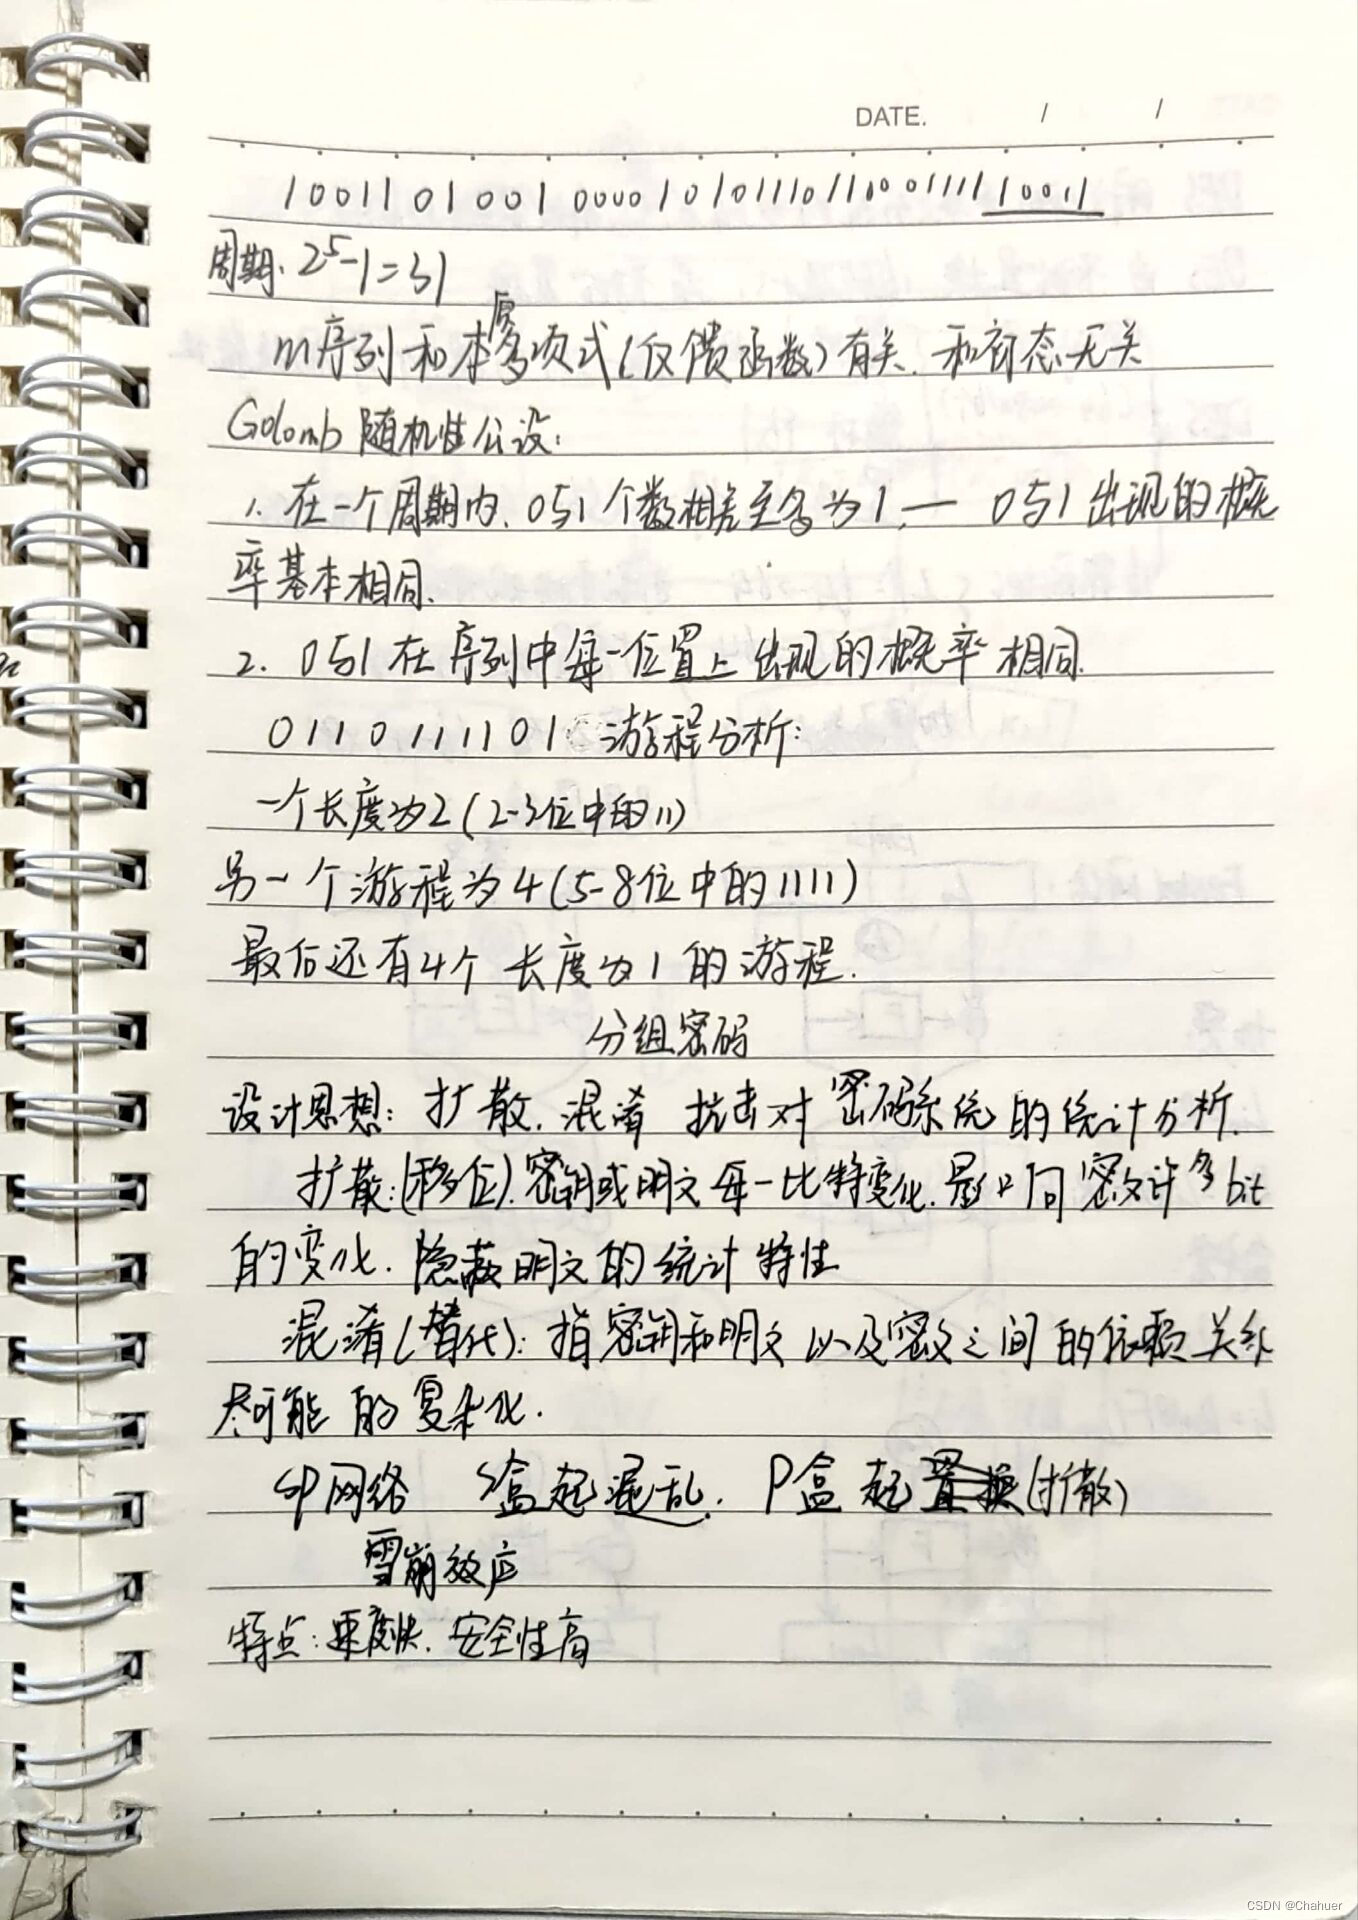 DATE. / /
1001101001000010101110110001111110011
周期: 2⁵-1=31
m序列和本原多项式(反馈函数)有关. 和初态无关
Golomb 随机性公设:
1. 在一个周期内, 0与1个数相差至多为1. — 0与1出现的概
率基本相同.
2. 0与1在序列中每一位置上出现的概率相同.
0110111101 游程分析:
一个长度为2(2-3位中的11)
另一个游程为4(5-8位中的1111)
最后还有4个长度为1的游程.
分组密码
设计思想: 扩散. 混淆 抗击对密码系统的统计分析.
扩散:(移位). 密钥或明文每一比特变化. 影响密文许多bit
的变化. 隐蔽明文的统计特性
混淆(替代): 指密钥和明文以及密文之间的依赖关系
尽可能的复杂化.
SP网络 S盒起混乱. P盒起置换(扩散)
雪崩效应
特点: 速度快. 安全性高
CSDN @Chahuer